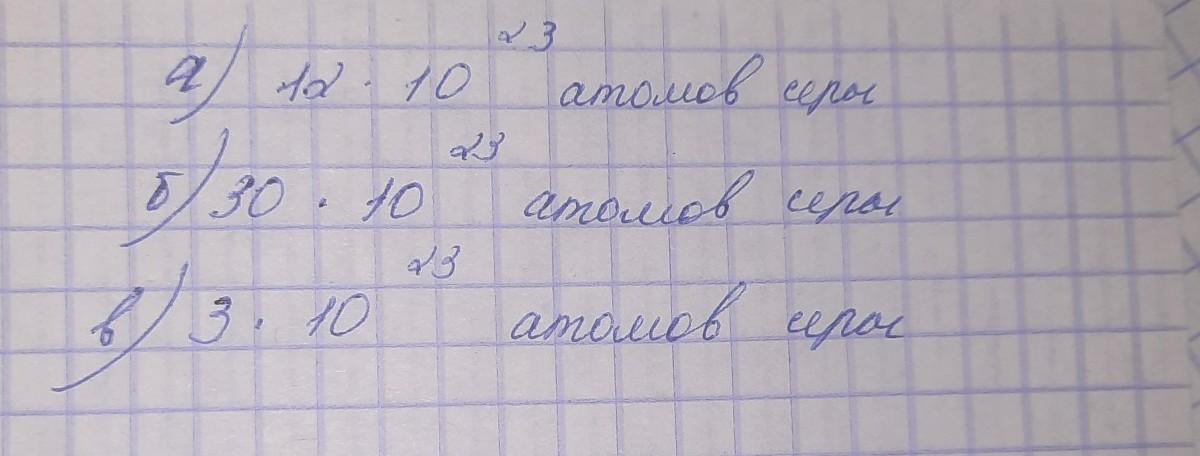 а) 12 · 10²³ атомов серы
б) 30 · 10²³ атомов серы
в) 3 · 10²³ атомов серы